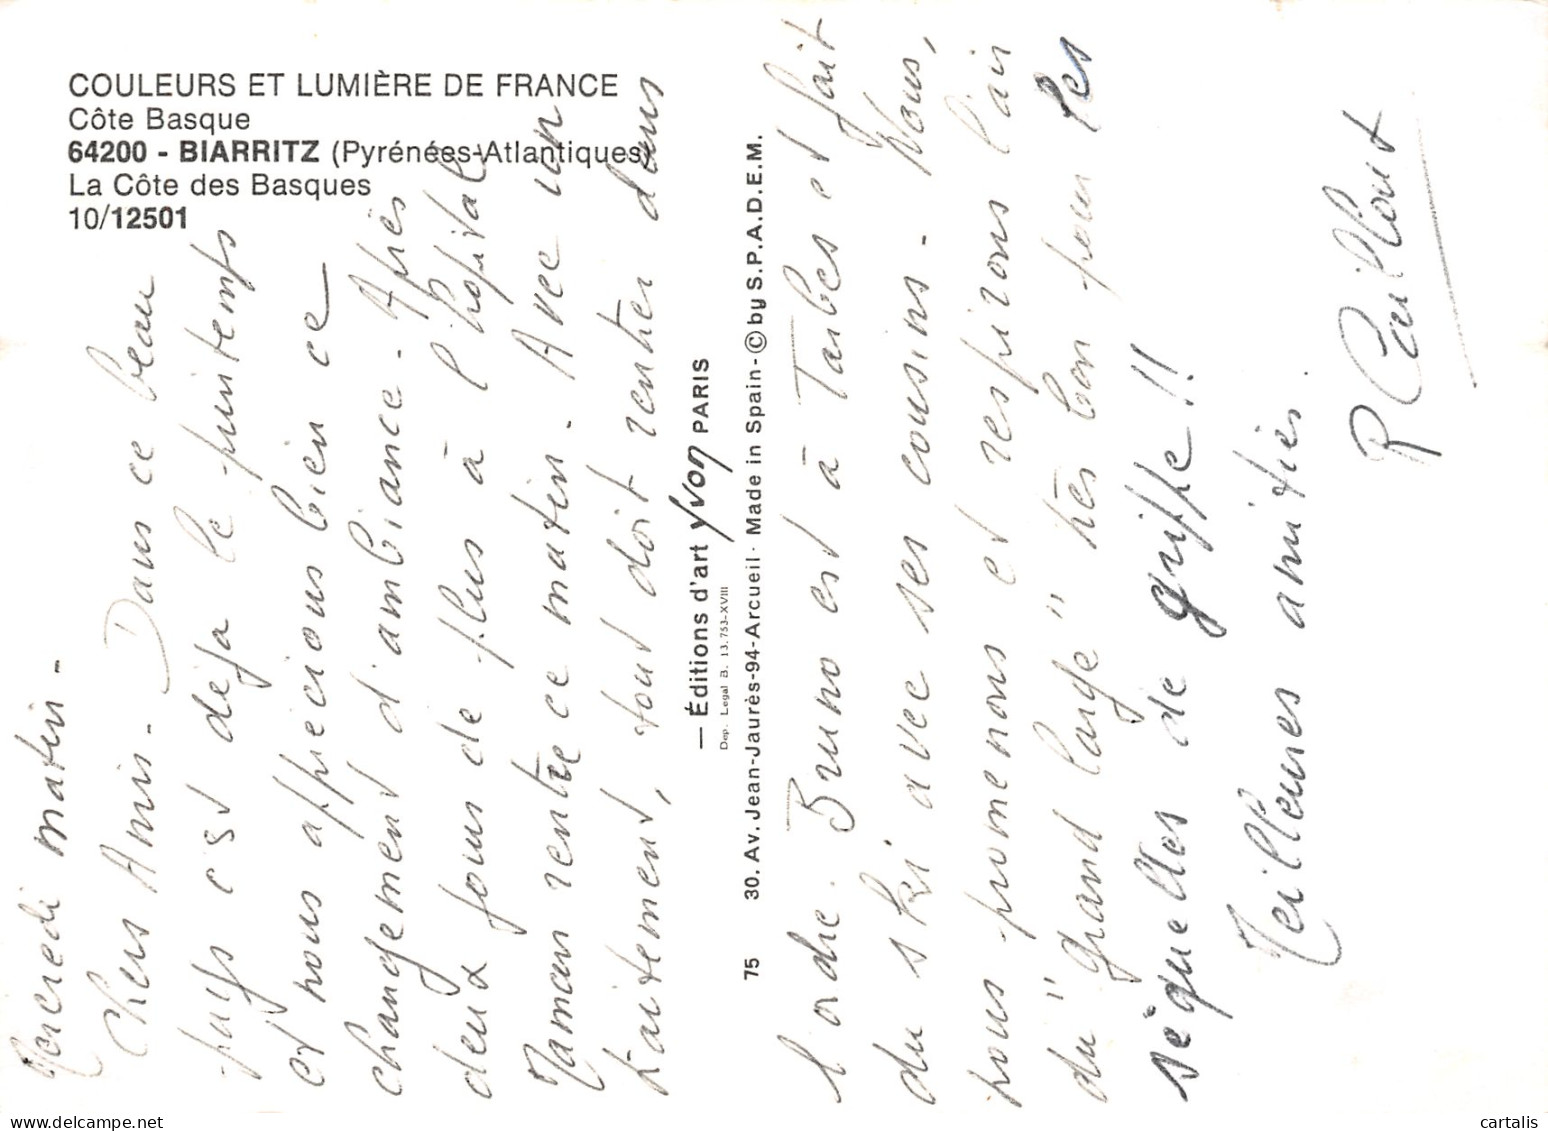 COULEURS ET LUMIÈRE DE FRANCE
Côte Basque
64200 - BIARRITZ (Pyrénées-Atlantiques)
La Côte des Basques
10/12501
Mercredi matin -
Chers Amis - Dans ce beau
pays c'est déjà le printemps
et nous apprécions bien ce
changement d'ambiance. Après
deux jours de plus à l'hôpital
Maman rentre ce matin. Avec un
traitement, tout doit rentrer dans
— Éditions d'art yvon PARIS
Dep. Legal B. 13.753-XVIII
75 30. Av. Jean-Jaurès-94-Arcueil - Made in Spain - © by S.P.A.D.E.M.
l'ordre. Bruno est à Tarbes et fait
du ski avec ses cousins - Nous,
nous promenons et respirons l'air
du "grand large" très bon pour les
séquelles de grippe !!
Meilleures amitiés.
R Caillout
cartalis